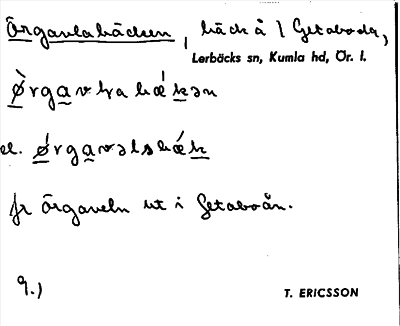 Örgavlabäcken, bäck å 1 Getaboda,
Lerbäcks sn, Kumla hd, Ör. l.
ǿrgavlrabǽkən
el. ǿrgavəlsbǽk
fr Örgaveln ut i Getaboån.
9.)
T. ERICSSON